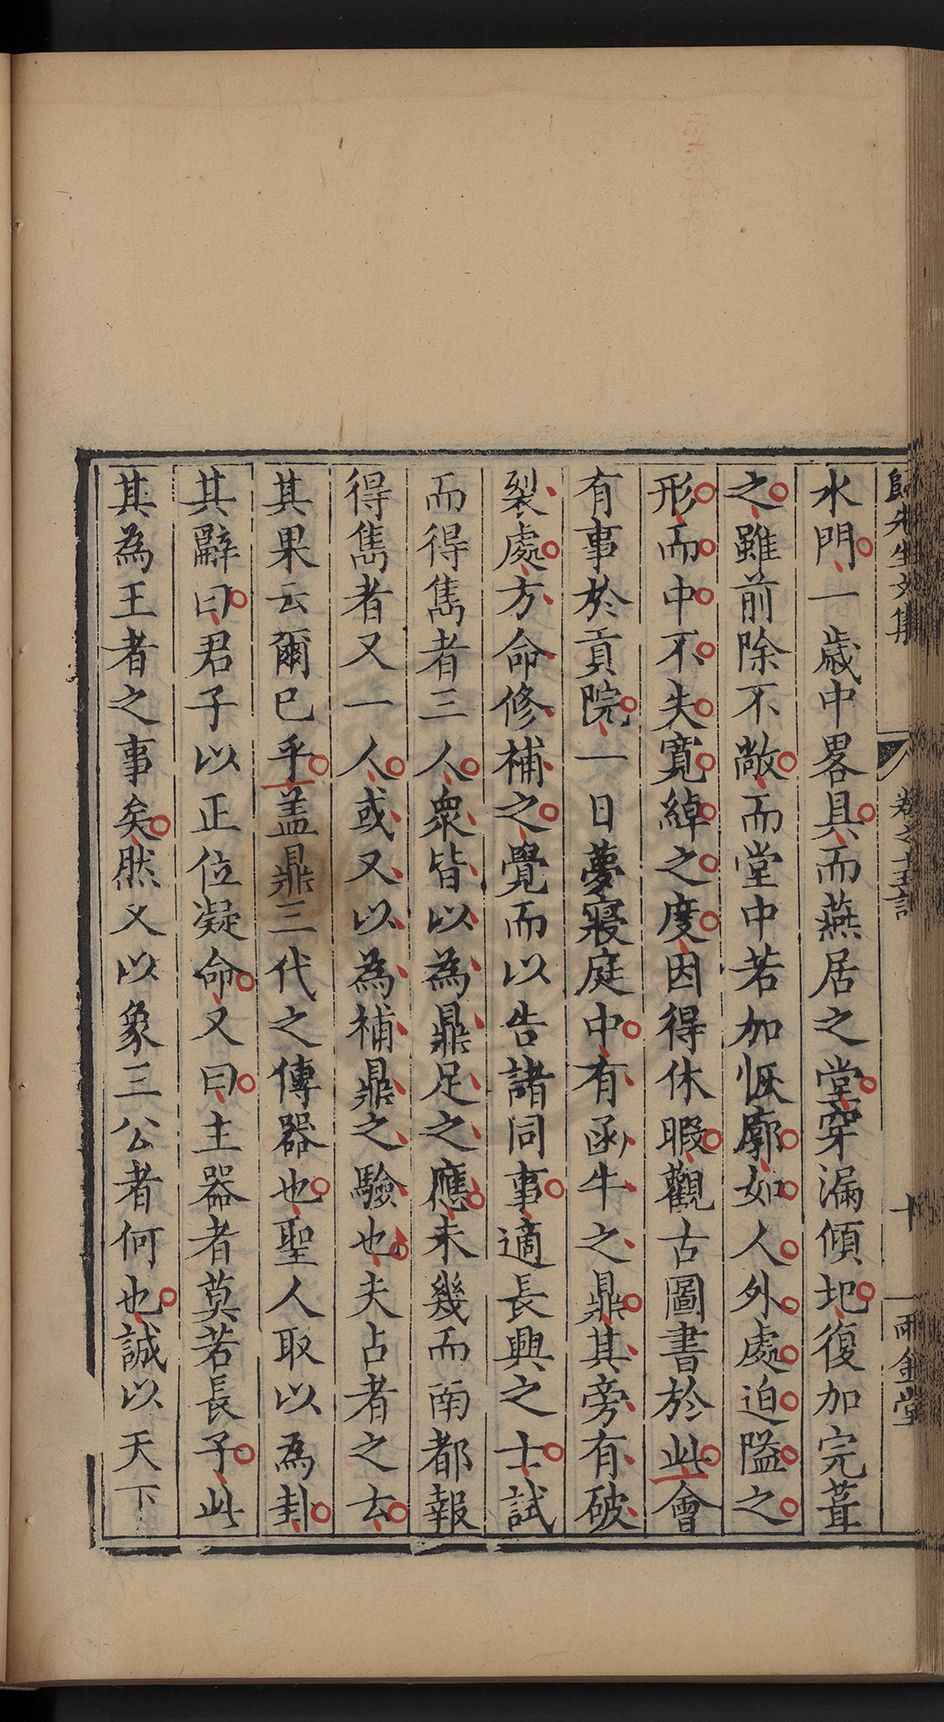 歸先生文集 卷之十五記 十 雨金堂
水門一歲中畧具而燕居之堂穿漏傾圯復加完葺
之雖前除不敞而堂中若加恢廓如人外處迫隘之
形而中不失寬綽之度因得休暇觀古圖書於此會
有事於貢院一日夢寢庭中有函牛之鼎其旁有破
裂處方命修補之覺而以告諸同事適長興之士試
而得雋者三人衆皆以為鼎足之應未幾而南都報
得雋者又一人或又以為補鼎之驗也夫占者之云
其果云爾已乎盖鼎三代之傳器也聖人取以為卦
其辭曰君子以正位凝命又曰主器者莫若長子此
其為王者之事矣然又以象三公者何也誠以天下